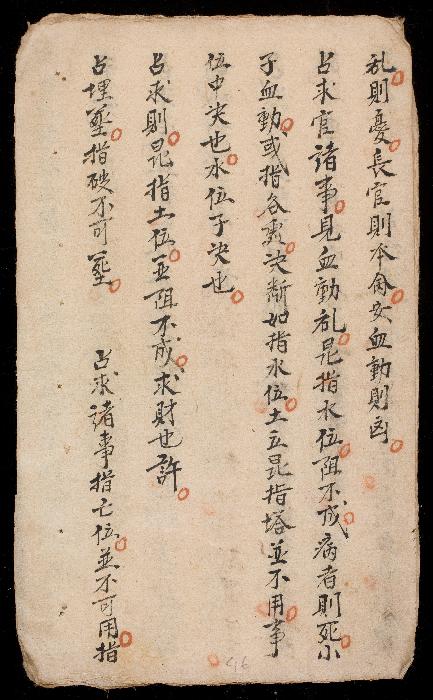 乱則憂長官則本命安血動則凶
占求官諸事見血動乱昆指水位阻不成病者則死小
子血動或指各處決断如指水位土立昆指塔並不用事
位中决也水位子决也
占求則昆指土位並阻不成求財也許
占埋葬指破不可葬 占求諸事指亡位並不可用指